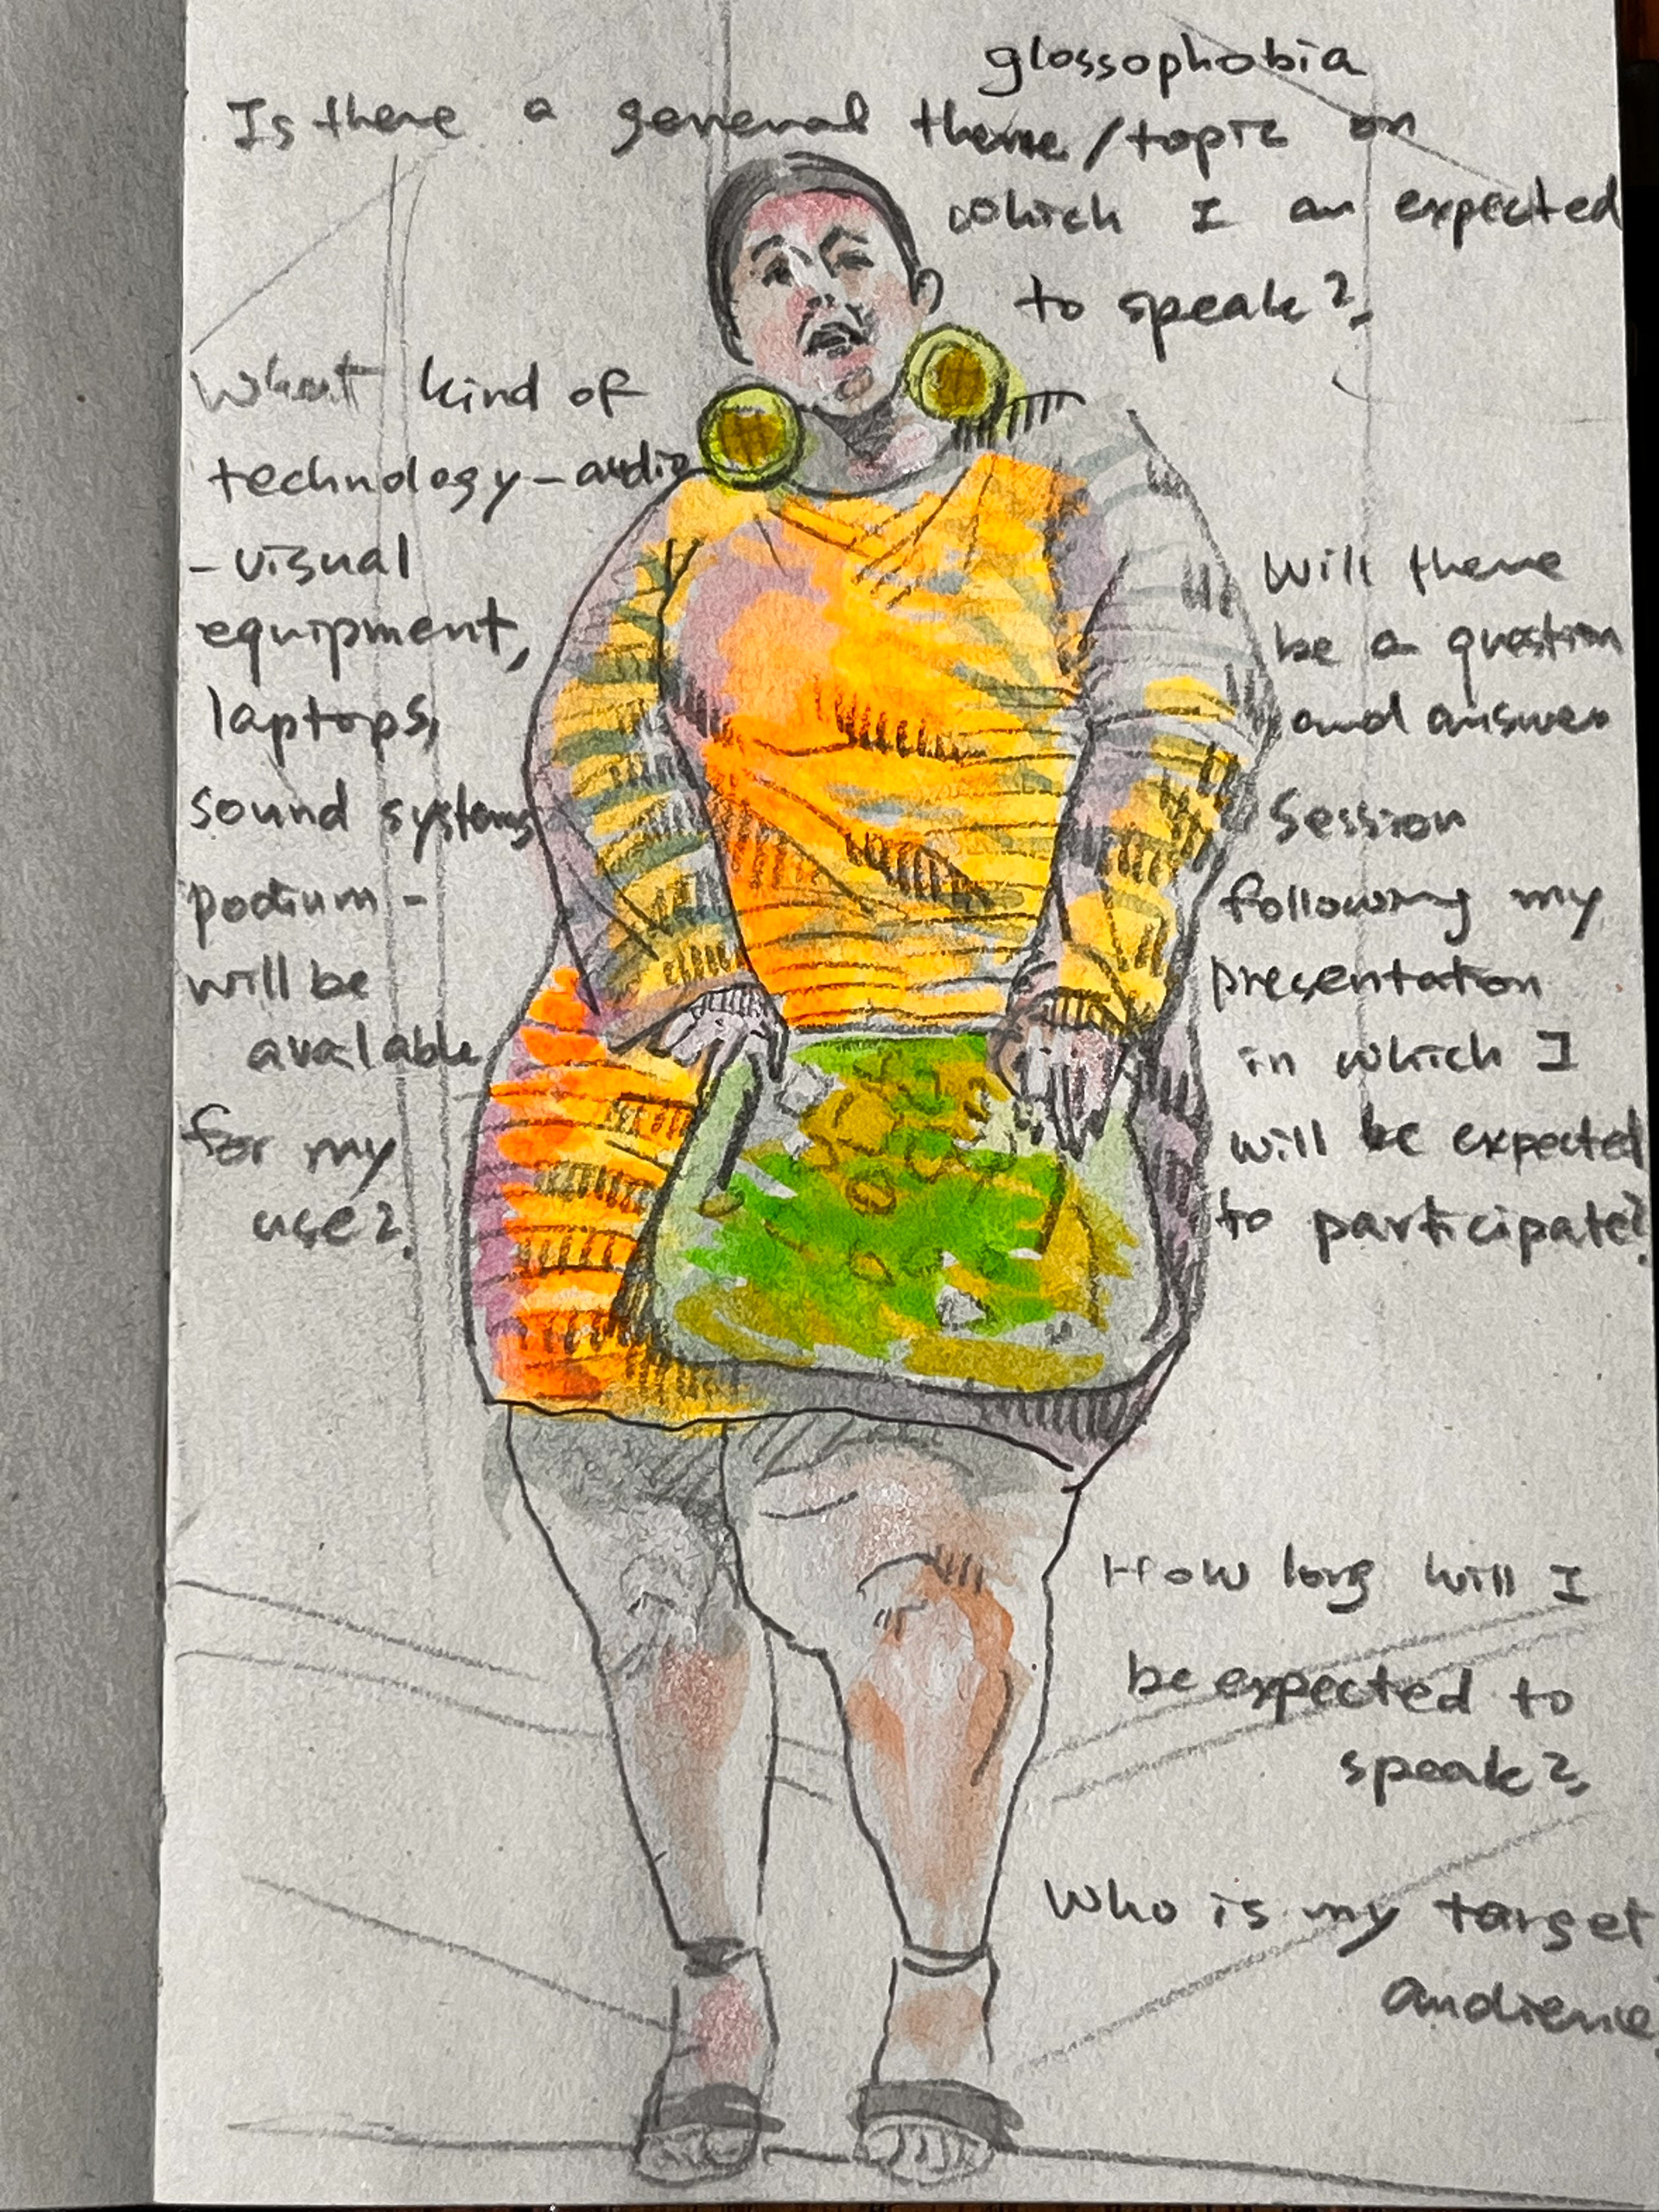 glossophobia
Is there a general theme/topic on
which I am expected
to speak?
What kind of
technology-audio
-visual
equipment,
laptops,
sound systems
podium-
will be
available
for my
use?
Will there
be a question
and answer
session
following my
presentation
in which I
will be expected
to participate?
How long will I
be expected to
speak?
Who is my target
audience